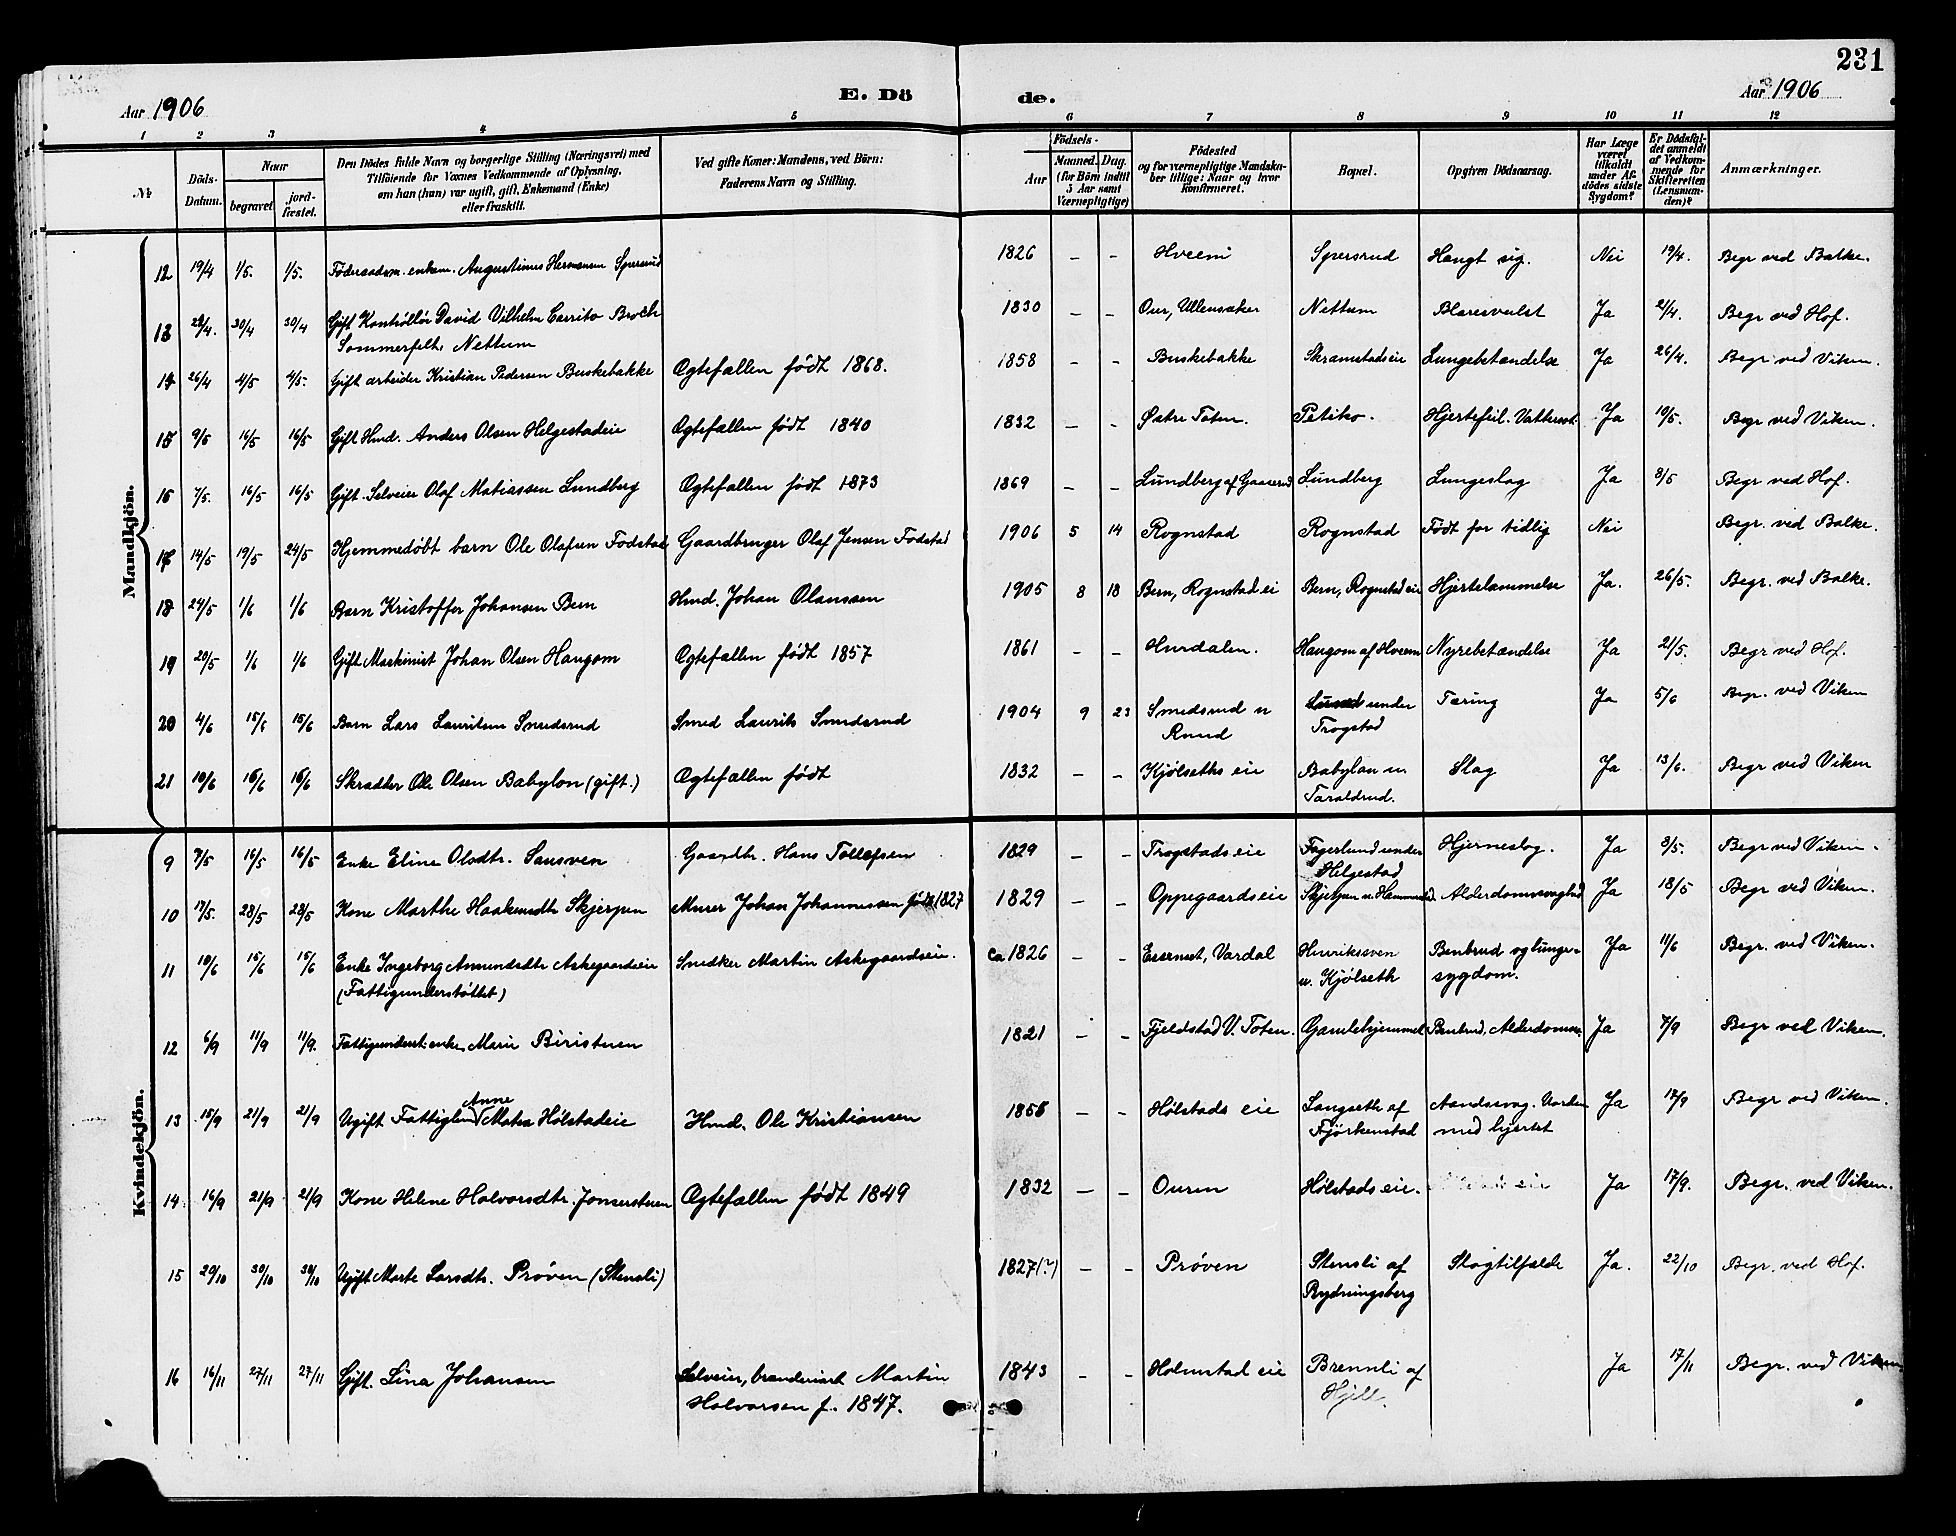 231
Aar 1906
E. Dö
de.
Aar 1906
1 2 3 4 5 6 7 8 9 10 11 12
№
Döds-
Datum.
Naar
begravet.
jord-
fæstet.
Den Dödes fulde Navn og borgerlige Stilling (Næringsvei) med
Tilföiende for Voxnes Vedkommende af Oplysning,
om han (hun) var ugift, gift, Enkemand (Enke)
eller fraskilt.
Ved gifte Koner: Mandens, ved Börn:
Faderens Navn og Stilling.
Födsels-
Aar
Maaned. Dag.
(for Börn indtil
5 Aar samt
Værnepligtige)
Födested
og for værnepligtige Mandska-
ber tillige: Naar og hvor
konfirmeret.
Bopæl.
Opgiven Dödsaarsag.
Har Læge
været
tilkaldt
under Af-
dödes sidste
Sygdom?
Er Dödsfal-
det anmeldt
af Vedkom-
mende for
Skifteretten
(Lensman-
den)?
Anmærkninger.
Mandkjön.
12 19/4 1/5. 1/5. Föderaadsm. enkem. Augustinus Hermansen Spersrud 1826 – – Hveem Spersrud Hængt sig. Nei 19/4. Begr ved Balke.
13 20/4. 30/4 30/4 Gift Kontrollör David Vilhelm Carrito Broch 1830 – – Our, Ullensaker Nettum Blæresvulst Ja 21/4. Begr ved Hof.
Sommerfelt, Nettum
14 26/4 4/5 4/5. Gift arbeider Kristian Pedersen Buskebakke Ægtefællen født 1868. 1858 – – Buskebakke Skramstadeie Lungebetændelse Ja 26/4. Begr ved Viken.
15 9/5 16/5 16/5 Gift Hmd. Anders Olsen Helgestadeie Ægtefællen født 1840 1832 – – Østre Toten. Petiko. Hjertefeil. Vattersot. Ja 10/5. Begr ved Viken.
16 7/5. 16/5 16/5 Gift. Selveier Olaf Matiassen Lundberg Ægtefællen født 1873 1869 – – Lundberg af Gaarder Lundberg Lungeslag Ja 8/5 Begr ved Hof.
17 14/5 19/5 24/5 Hjemmedøbt barn Ole Olafsen Fodstad Gaardbruger Olaf Jensen Fodstad 1906 5 14 Rognstad Rognstad Født for tidlig Nei Begr. ved Balke.
18 24/5 1/6 1/6 Barn Kristoffer Johansen Bern Hmd. Johan Olaussen 1905 8 18 Bern, Rognstad ei Bern, Rognstad eie Hjertelammelse Ja. 26/5. Begr. ved Balke.
19 20/5 1/6 1/6 Gift Maskinist Johan Olsen Haugom Ægtefællen født 1857 1861 – – Hurdalen. Haugom af Hveem Nyrebetændelse Ja 21/5. Begr ved Hof.
20 4/6 15/6 15/6 Barn Lars Lauritsen Smedsrud Smed Laurits Smedsrud 1904 9 23 Smedsrud u Lund under Tæring Ja 5/6 Begr. ved Viken
Ruud Trogstad
21 10/6 16/6 16/6 Skrædder Ole Olsen Babylon (gift.) Ægtefællen født 1832 – – Kjölseths eie Babylon u. Slag Ja 13/6. Begr ved Viken
Taraldrud.
Kvindekjön.
9 7/5 16/5 16/5 Enke Eline Olsdtr. Sansven Gaardbr. Hans Tollefsen 1829 – – Trogstads eie Fagerlund under Hjerneslag. Ja 8/5. Begr ved Viken.
Helgestad
10 17/5. 28/5 28/5 Kone Marthe Haakensdtr Skjerpen Murer Johan Johannessen født 1827 1829 – – Oppegaardseie Skjerpen u. Hammerstad Alderdomssvaghed Ja 18/5 Begr ved Viken.
11 10/6 15/6 15/6 Enke Ingeborg Amundsdtr Askegaardseie Snedker Martin Askegaardseie. ca 1826 – – Eesernet, Vardal Henrikssven Benbrud og lunge- Ja 11/6 Begr. ved Viken.
(Fattigunderstøttet) u. Kjölseth sygdom.
12 6/9 11/9 11/9. Fattigunderst: enke Marie Biristuen 1821 – – Fjeldstad V. Toten. Gamlehjemmet Benbrud, Alderdomssv. Ja 7/9 Begr ved Viken.
13 15/9 21/9 21/9 Ugift Fattiglem Anne Mathea Hölstadeie Hmd. Ole Kristiansen 1855 – – Hölstads eie Langseth af Aandssvag. Uorden Ja 17/9 Begr ved Viken.
Fjørkenstad med hjertet
14 16/9 21/9 21/9 Kone Helene Halvorsdtr. Jonserstuen Ægtefællen født 1849 1832 – – Ouren Hölstads eie. Ja 17/9. Begr. ved Viken.
15 20/10 30/10 30/10 Ugift Marte Larsdtr. Prøven (Stensli) 1827(?) – – Prøven Stensli af Slagtilfælde Ja. 22/10 Begr. ved Hof.
Rydningsberg
16 16/11 27/11 27/11 Gift. Lina Johansen Selveier, brænderiarb Martin 1843 – – Holmstad eie Brennli af Ja 17/11 Begr. ved Viken
Halvorsen f. 1847. Hjell.